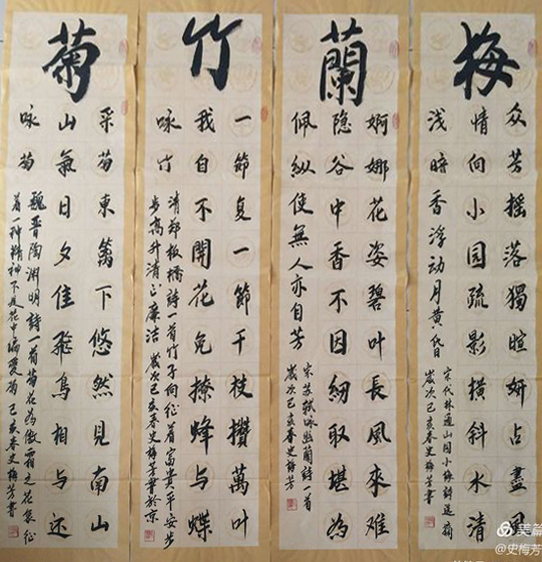 梅
众芳摇落獨暄妍占盡風
情向小园疏影横斜水清
浅暗香浮动月黄昏
宋代林逋山园小梅詩選
歲次己亥春史梅芳書
蘭
婀娜花姿碧叶長風來难
隐谷中香不因纫取堪为
佩纵使無人亦自芳
宋苏轼咏幽蘭詩一首
歲次己亥春史梅芳
竹
一節复一節千枝攢萬叶
我自不開花免撩蜂与蝶
咏竹
清郑板橋詩一首竹子向征着富贵平安步
步高升清正廉洁 歲次己亥春史梅芳書於京
菊
采菊東篱下悠然見南山
山氣日夕佳飛鳥相与还
咏菊
魏晋陶渊明詩一首菊花为傲霜之花象征
着一种精神不是花中偏爱菊 己亥春史梅芳書
美篇
@史梅芳